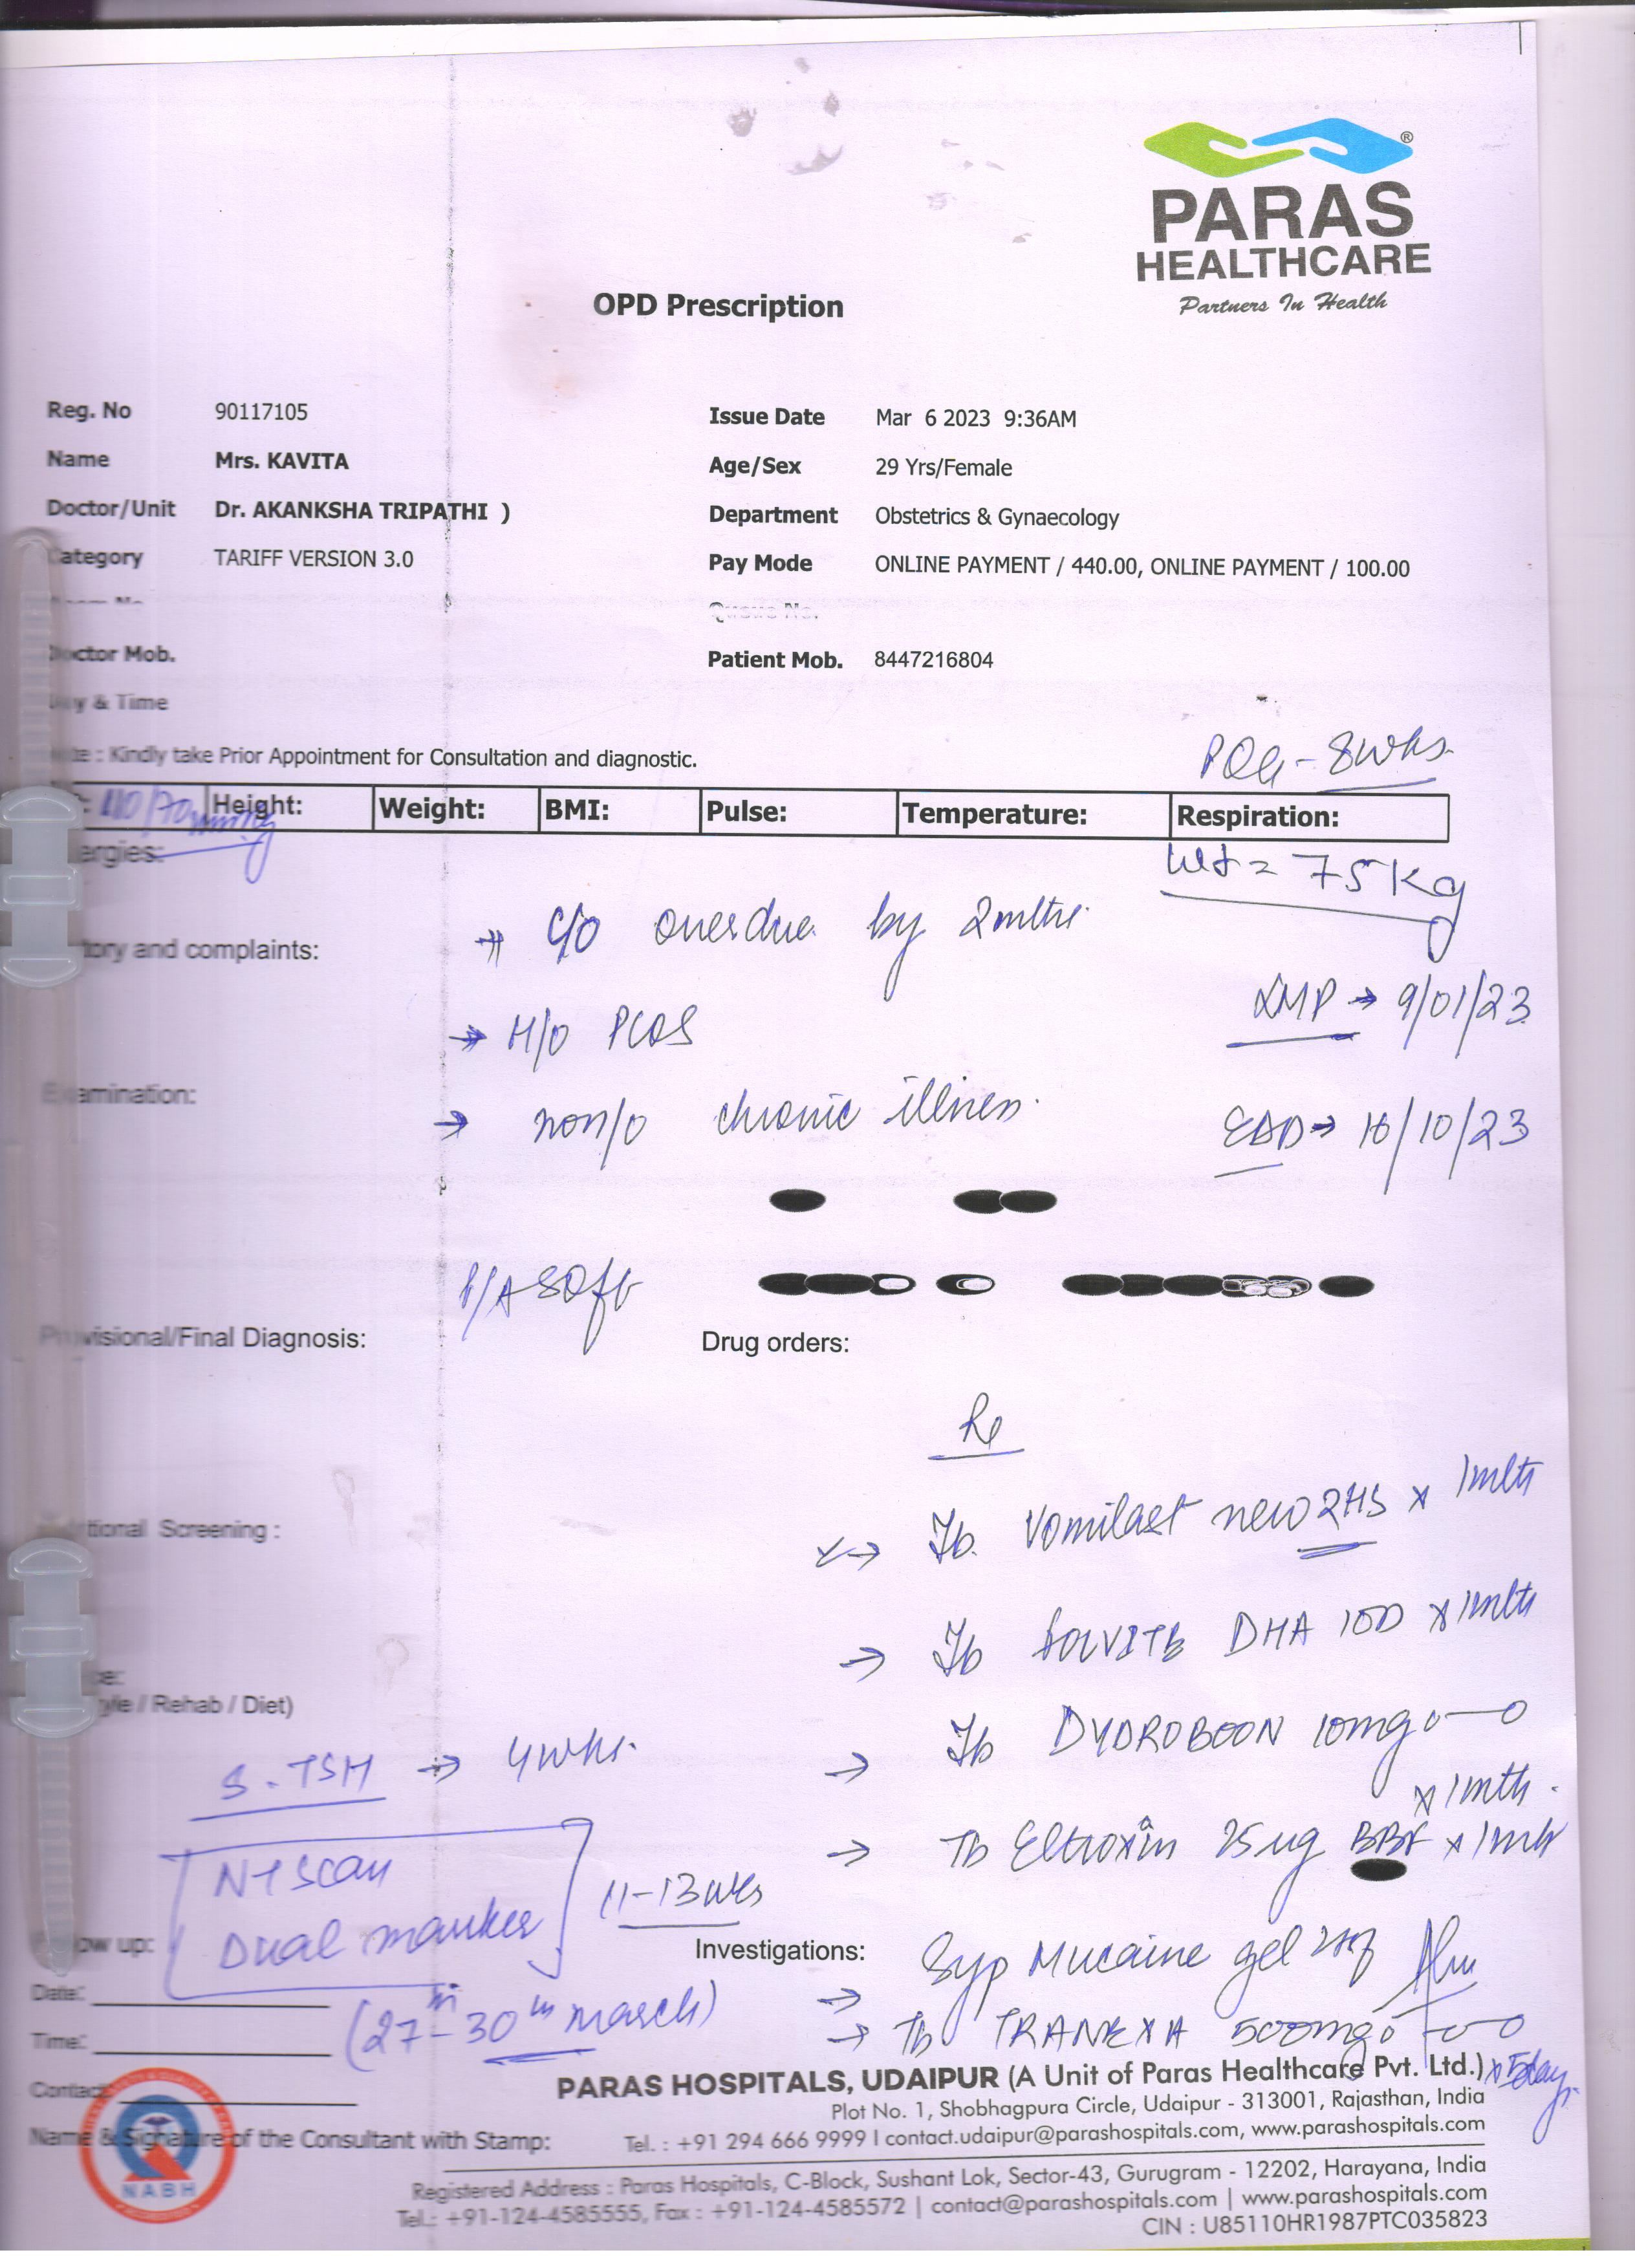 ®
PARAS
HEALTHCARE
Partners In Health
OPD Prescription
Reg. No 90117105 Issue Date Mar 6 2023 9:36AM
Name Mrs. KAVITA Age/Sex 29 Yrs/Female
Doctor/Unit Dr. AKANKSHA TRIPATHI ) Department Obstetrics & Gynaecology
Category TARIFF VERSION 3.0 Pay Mode ONLINE PAYMENT / 440.00, ONLINE PAYMENT / 100.00
Queue No.
Doctor Mob. Patient Mob. 8447216804
& Time
: Kindly take Prior Appointment for Consultation and diagnostic.
POG - 8wks.
110/70 Height: Weight: BMI: Pulse: Temperature: Respiration:
Wt = 75 Kg
→ C/O overdue by 2mths.
and complaints:
LMP → 9/01/23
→ H/O PCOS
Examination:
→ no n/o chronic illness.
EDD → 16/10/23
P/A soft
Provisional/Final Diagnosis: Drug orders:
Rx
→ Tb. Vomilast new 2HS x 1mth
Screening :
→ Tb DHA 1OD x 1mth
/ Rehab / Diet)
→ Tb DYDROBOON 10mg 0—0
x 1mth.
S. TSH → 4wks.
→ Tb Eltroxin 25ug BBF x 1mth
NT scan
Dual marker
11-13wks
up: Investigations:
→ Syp Mucaine gel
Date:
(27th - 30th march)
→ Tb TRANEXA 500mg 0-0-0
Time:
x 5day
Contact
Name & Signature of the Consultant with Stamp:
NABH
PARAS HOSPITALS, UDAIPUR (A Unit of Paras Healthcare Pvt. Ltd.)
Plot No. 1, Shobhagpura Circle, Udaipur - 313001, Rajasthan, India
Tel. : +91 294 666 9999 I contact.udaipur@parashospitals.com, www.parashospitals.com
Registered Address : Paras Hospitals, C-Block, Sushant Lok, Sector-43, Gurugram - 12202, Harayana, India
Tel.: +91-124-4585555, Fax : +91-124-4585572 | contact@parashospitals.com | www.parashospitals.com
CIN : U85110HR1987PTC035823